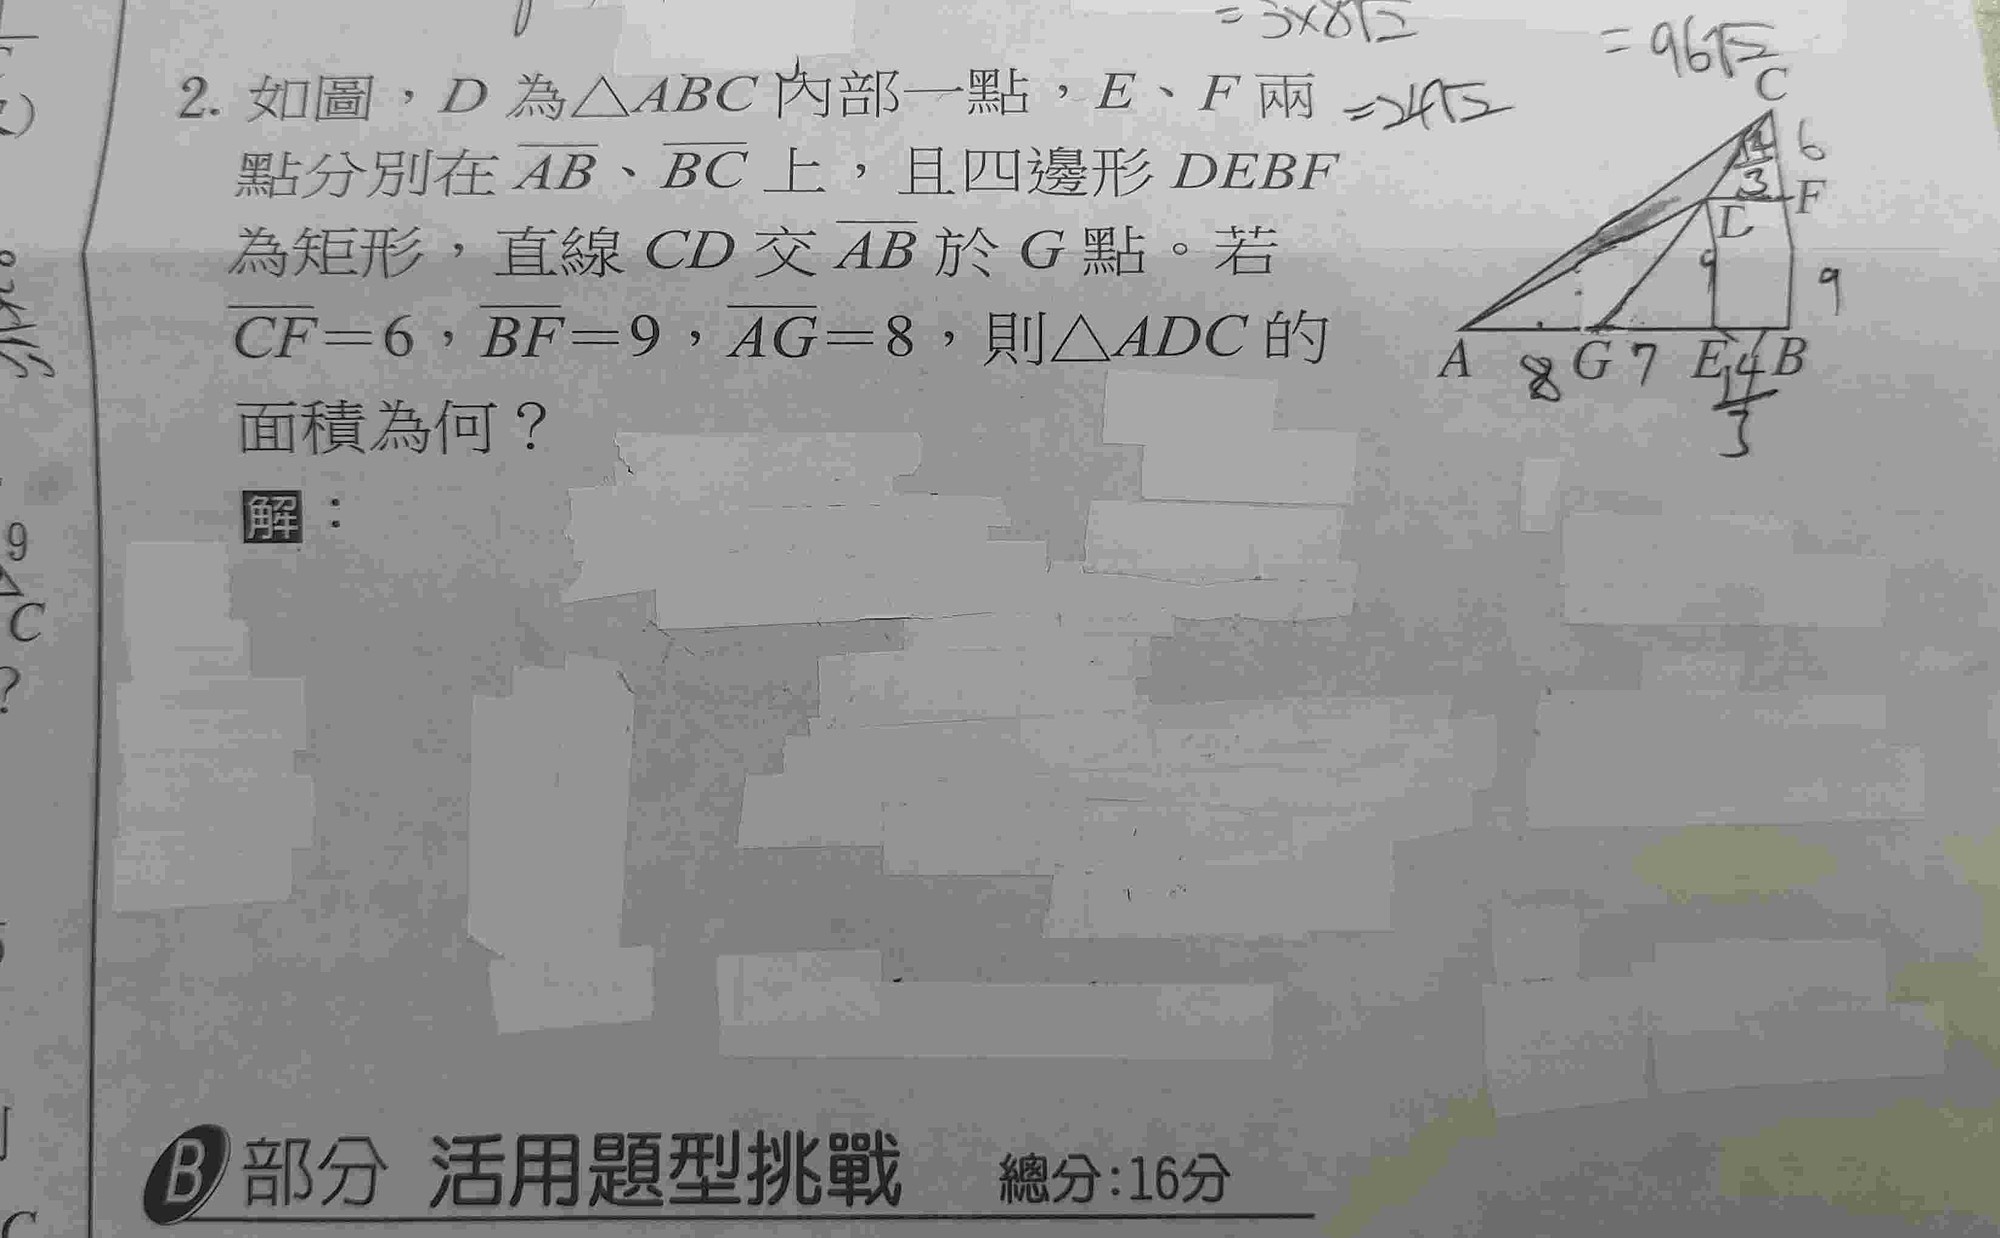 =3×8√2
=96√2
2. 如圖，D 為△ABC 內部一點，E、F 兩
=24√2
點分別在 AB、BC 上，且四邊形 DEBF
為矩形，直線 CD 交 AB 於 G 點。若
CF=6，BF=9，AG=8，則△ADC 的
面積為何？
解：
C
6
F
D
9
9
A
G
E
B
8
7
14
3
9
C
?
B 部分 活用題型挑戰 總分:16分
C